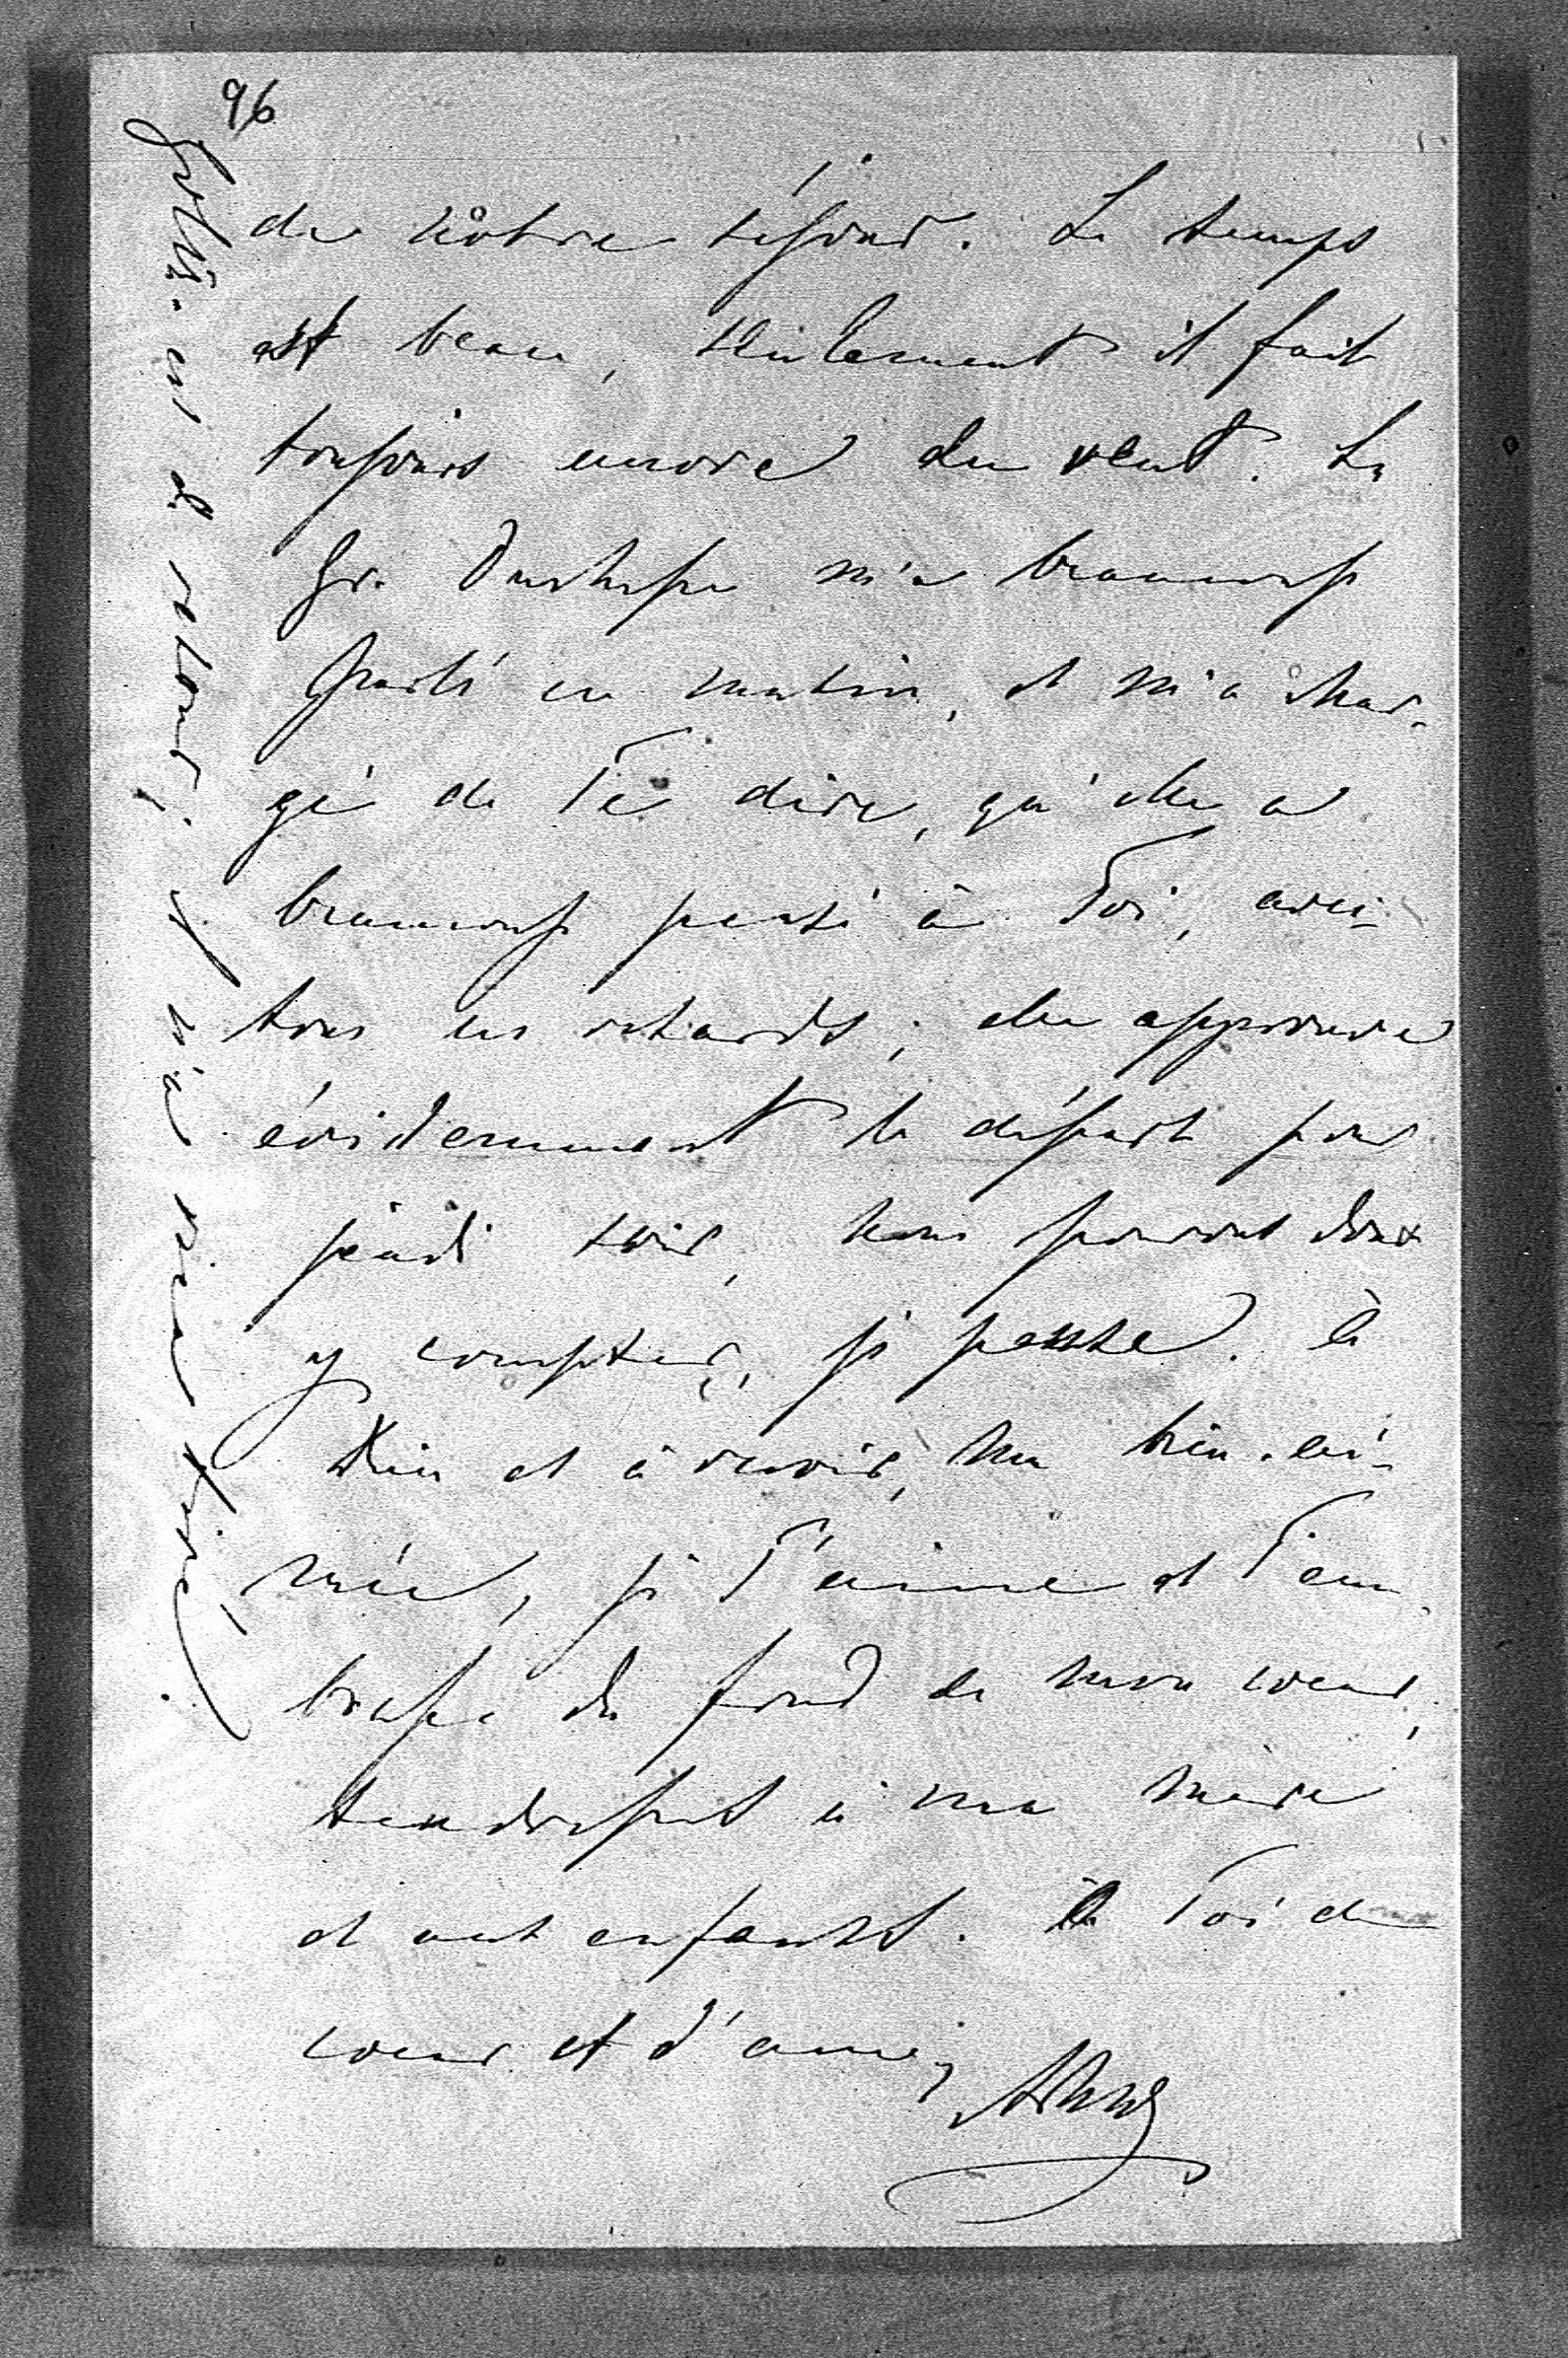 96
de nôtre séjour. Le temps
est beau, seulement il fait
toujours encore du vent. La
Gr. Duchesse m'a beaucoup
parlé ce matin, et m'a char-
gé de Te dire, qu'elle a
beaucoup pensé à Toi, avec
tous ces retards; elle approuve
évidemment le départ pour
jeudi soir, nous pouvons donc
y compter, je pense. à
Dieu et à revoir, ma bien-ai-
mée, je T'aime et T'em-
brasse du fond de mon coeur,
tendresses à ma mère
et aux enfants. à Toi de
coeur et d'âme,
est de retour, je n'ai rien